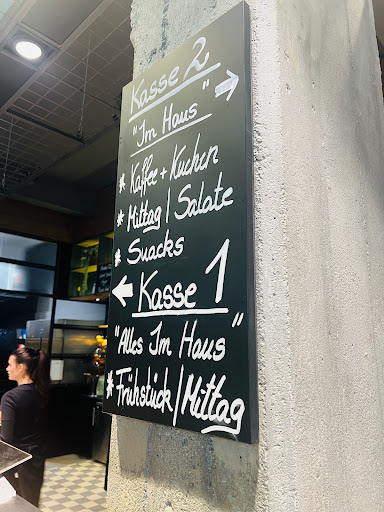 Kasse 2 →
"Im Haus"
* Kaffee + Kuchen
* Mittag | Salate
* Snacks
← Kasse 1
"Alles Im Haus"
* Frühstück | Mittag